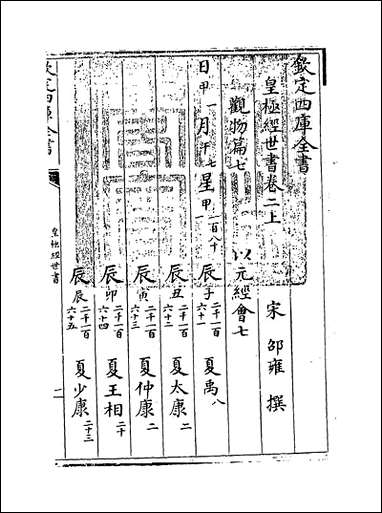 欽定四庫全書
皇極經世書卷二上
宋 邵雍 撰
觀物篇七 以元經會七
日甲一月午七星甲一百八十一 辰子二千一百六十一 夏禹八
辰丑二千一百六十二 夏太康二
辰寅二千一百六十三 夏仲康二
辰卯二千一百六十四 夏王相二十
辰辰二千一百六十五 夏少康二十三
欽定四庫全書
皇極經世書
一